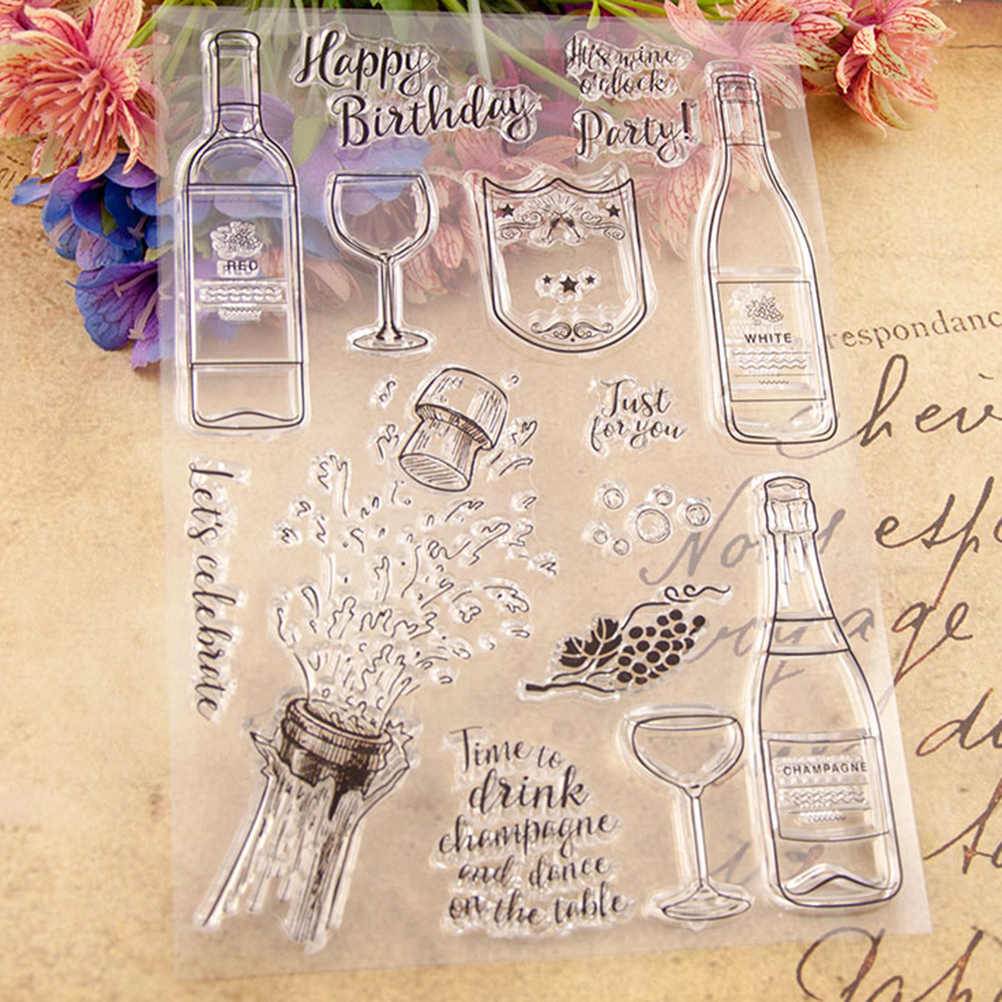 Happy
Birthday
It's wine
o'clock
Party!
RED
WHITE
Just
for you
Let's celebrate
respondanc
Time to
drink
champagne
and dance
on the table
CHAMPAGNE